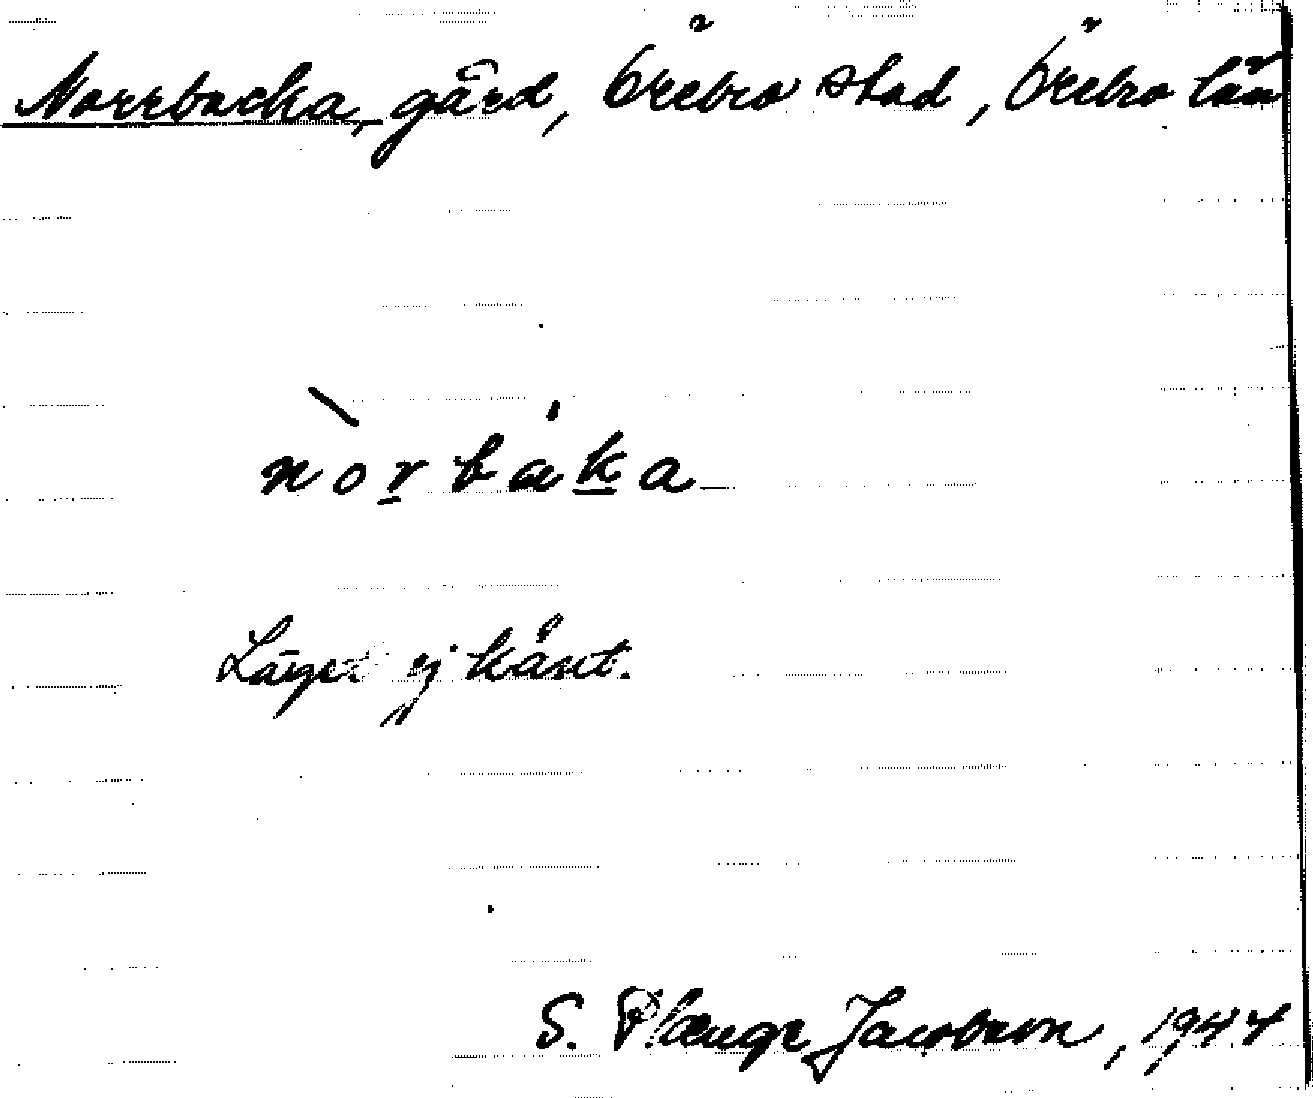 Norrbacka, gård, Örebro stad, Örebro län
nòrbáka
Läget ej känt.
S. Plenge Jacobson, 1944